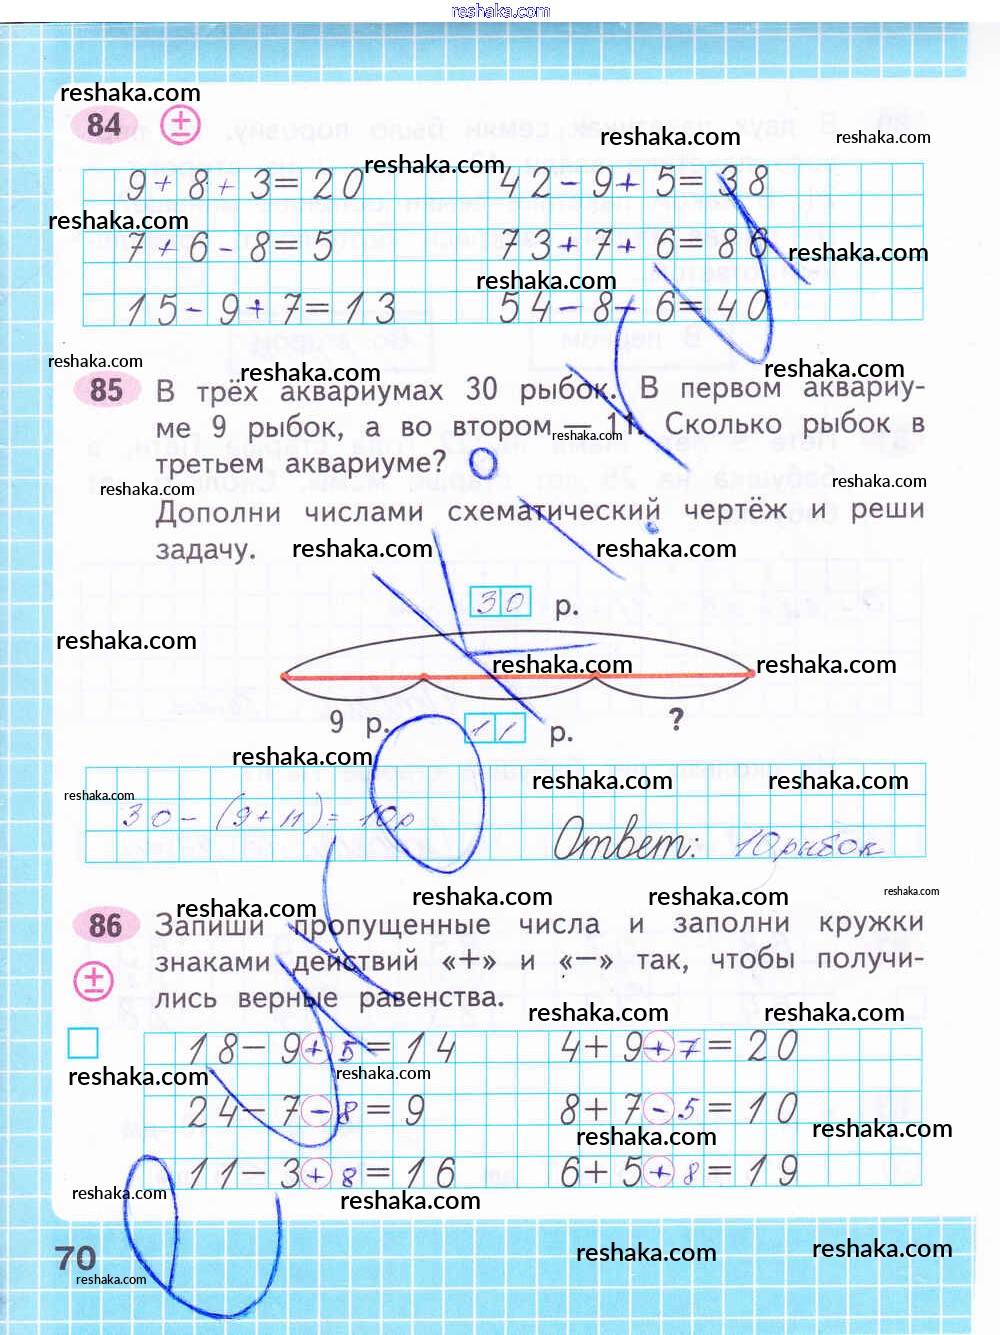 reshaka.com
reshaka.com
84 ±
reshaka.com reshaka.com
reshaka.com
9+8+3=20 42-9+5=38
reshaka.com
7+6-8=5 73+7+6=86
reshaka.com
reshaka.com
15-9+7=13 54-8-6=40
reshaka.com reshaka.com reshaka.com
85 В трёх аквариумах 30 рыбок. В первом аквариу-
ме 9 рыбок, а во втором — 11. Сколько рыбок в
reshaka.com
третьем аквариуме?
reshaka.com reshaka.com
Дополни числами схематический чертёж и реши
задачу.
reshaka.com reshaka.com
30 р.
reshaka.com reshaka.com reshaka.com
9 р. 11 р. ?
reshaka.com reshaka.com reshaka.com
reshaka.com
30-(9+11)=10р
Ответ: 10 рыбок
reshaka.com reshaka.com reshaka.com
reshaka.com
86 Запиши пропущенные числа и заполни кружки
± знаками действий «+» и «−» так, чтобы получи-
лись верные равенства.
reshaka.com reshaka.com
18-9+5=14 4+9+7=20
reshaka.com reshaka.com
24-7-8=9 8+7-5=10
reshaka.com reshaka.com
11-3+8=16 6+5+8=19
reshaka.com reshaka.com
70 reshaka.com reshaka.com
reshaka.com